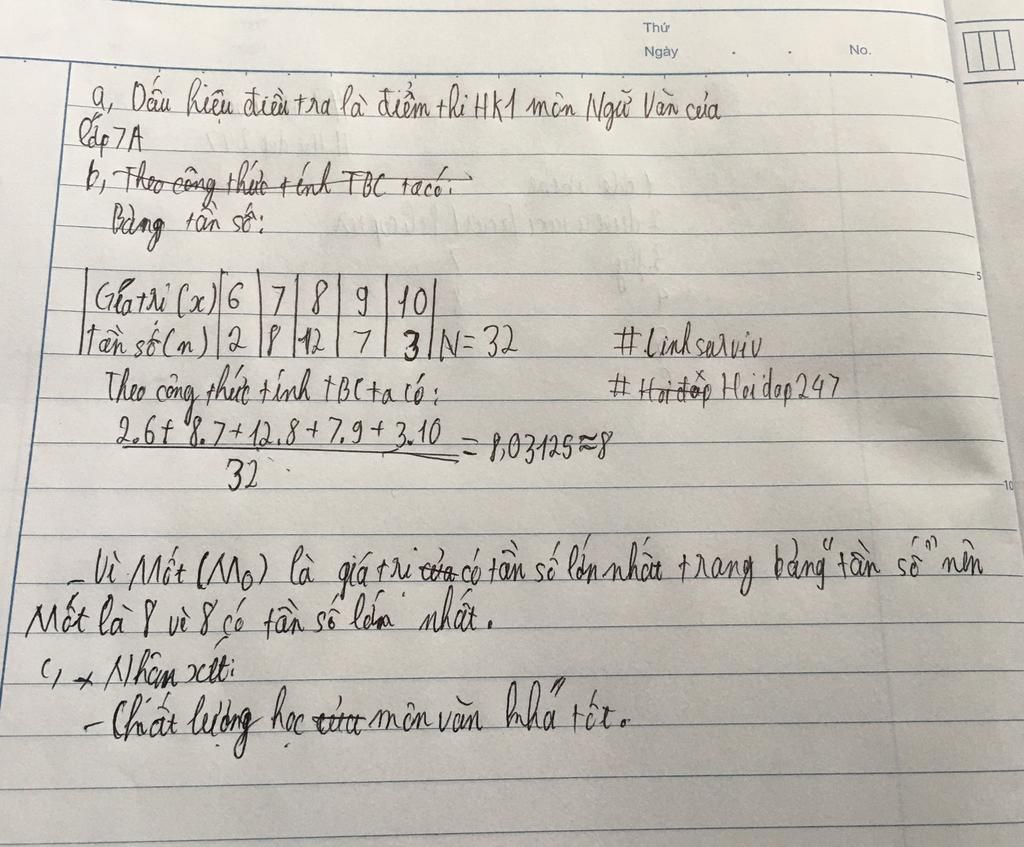 Thứ
Ngày . . No.
a, Dấu hiệu điều tra là điểm thi HK1 môn Ngữ Văn của
lớp 7A
b, Theo công thức tính TBC ta có:
Bảng tần số:
5
Giá trị (x) 6 7 8 9 10
tần số (n) 2 8 12 7 3 N = 32 #linhsurviv
Theo công thức tính TBC ta có: # Hoidap Hoidap247
2.6 + 8.7 + 12.8 + 7.9 + 3.10 = 8,03125 ≈ 8
32
10
- Vì Mốt (M₀) là giá trị của có tần số lớn nhất trang bảng "tần số" nên
Mốt là 8 vì 8 có tần số lớn nhất.
c, * Nhận xét:
- Chất lượng học của môn văn khá tốt.